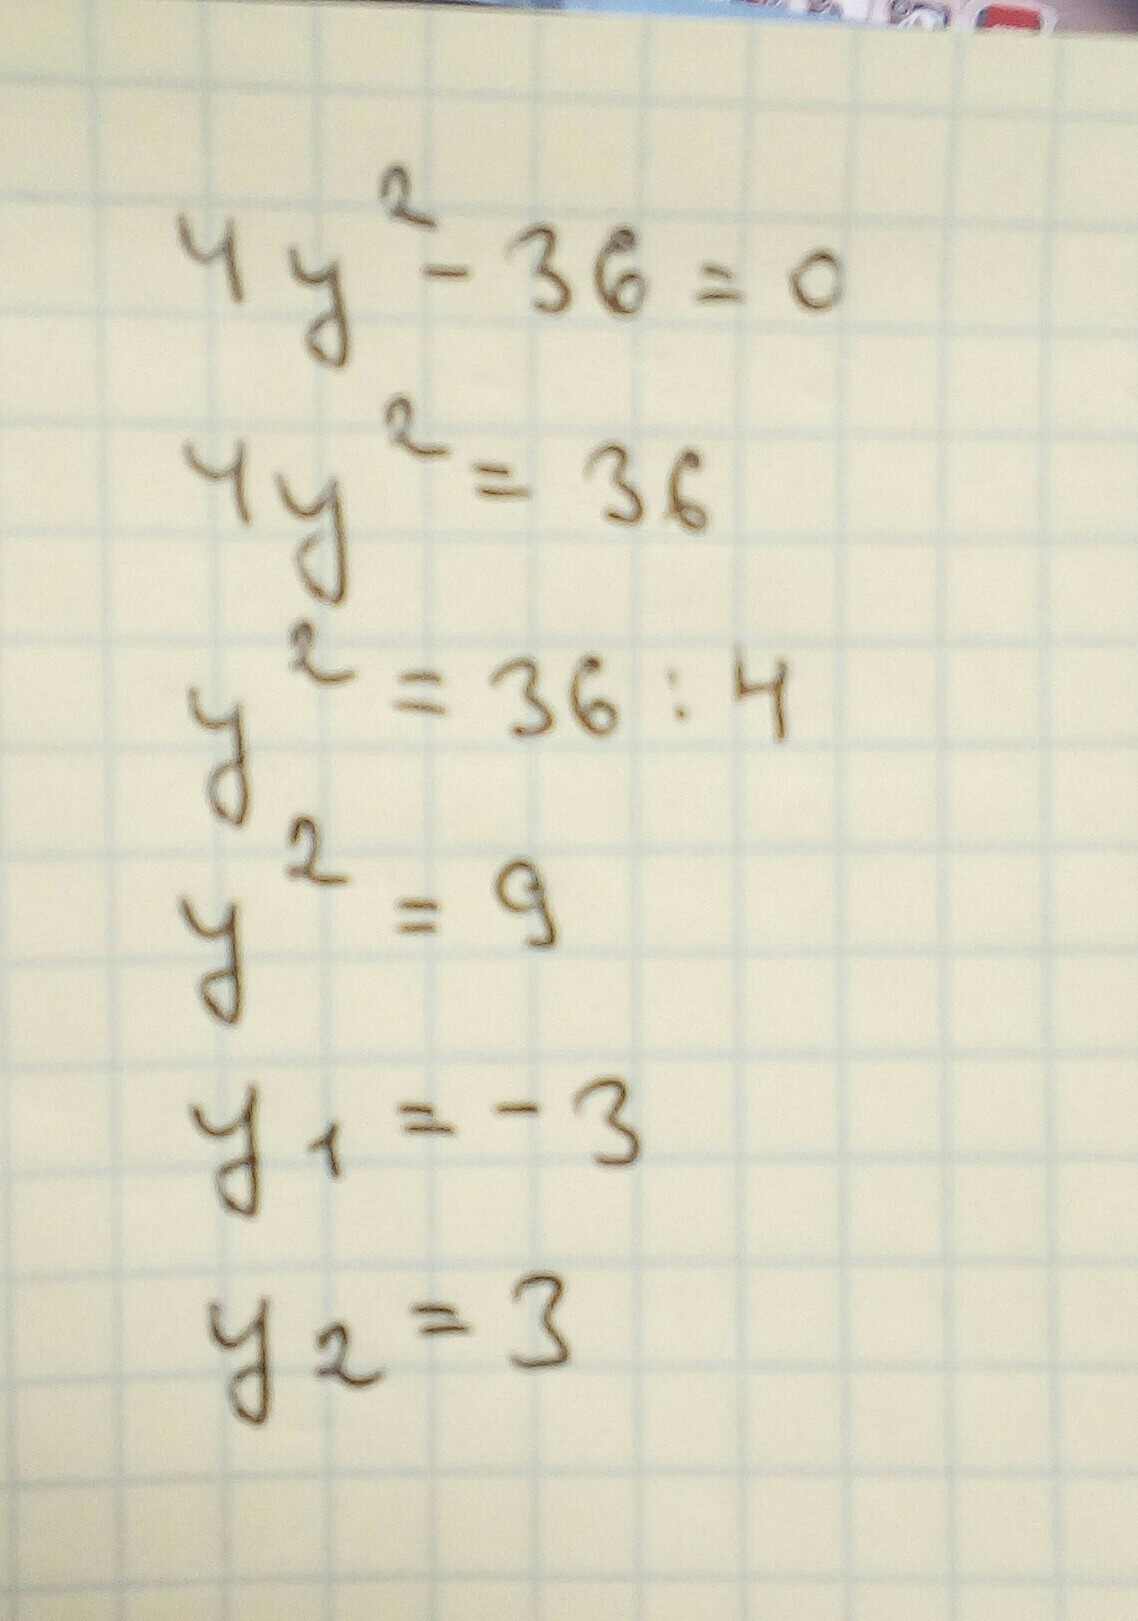 4y² - 36 = 0
4y² = 36
y² = 36 : 4
y² = 9
y₁ = - 3
y₂ = 3